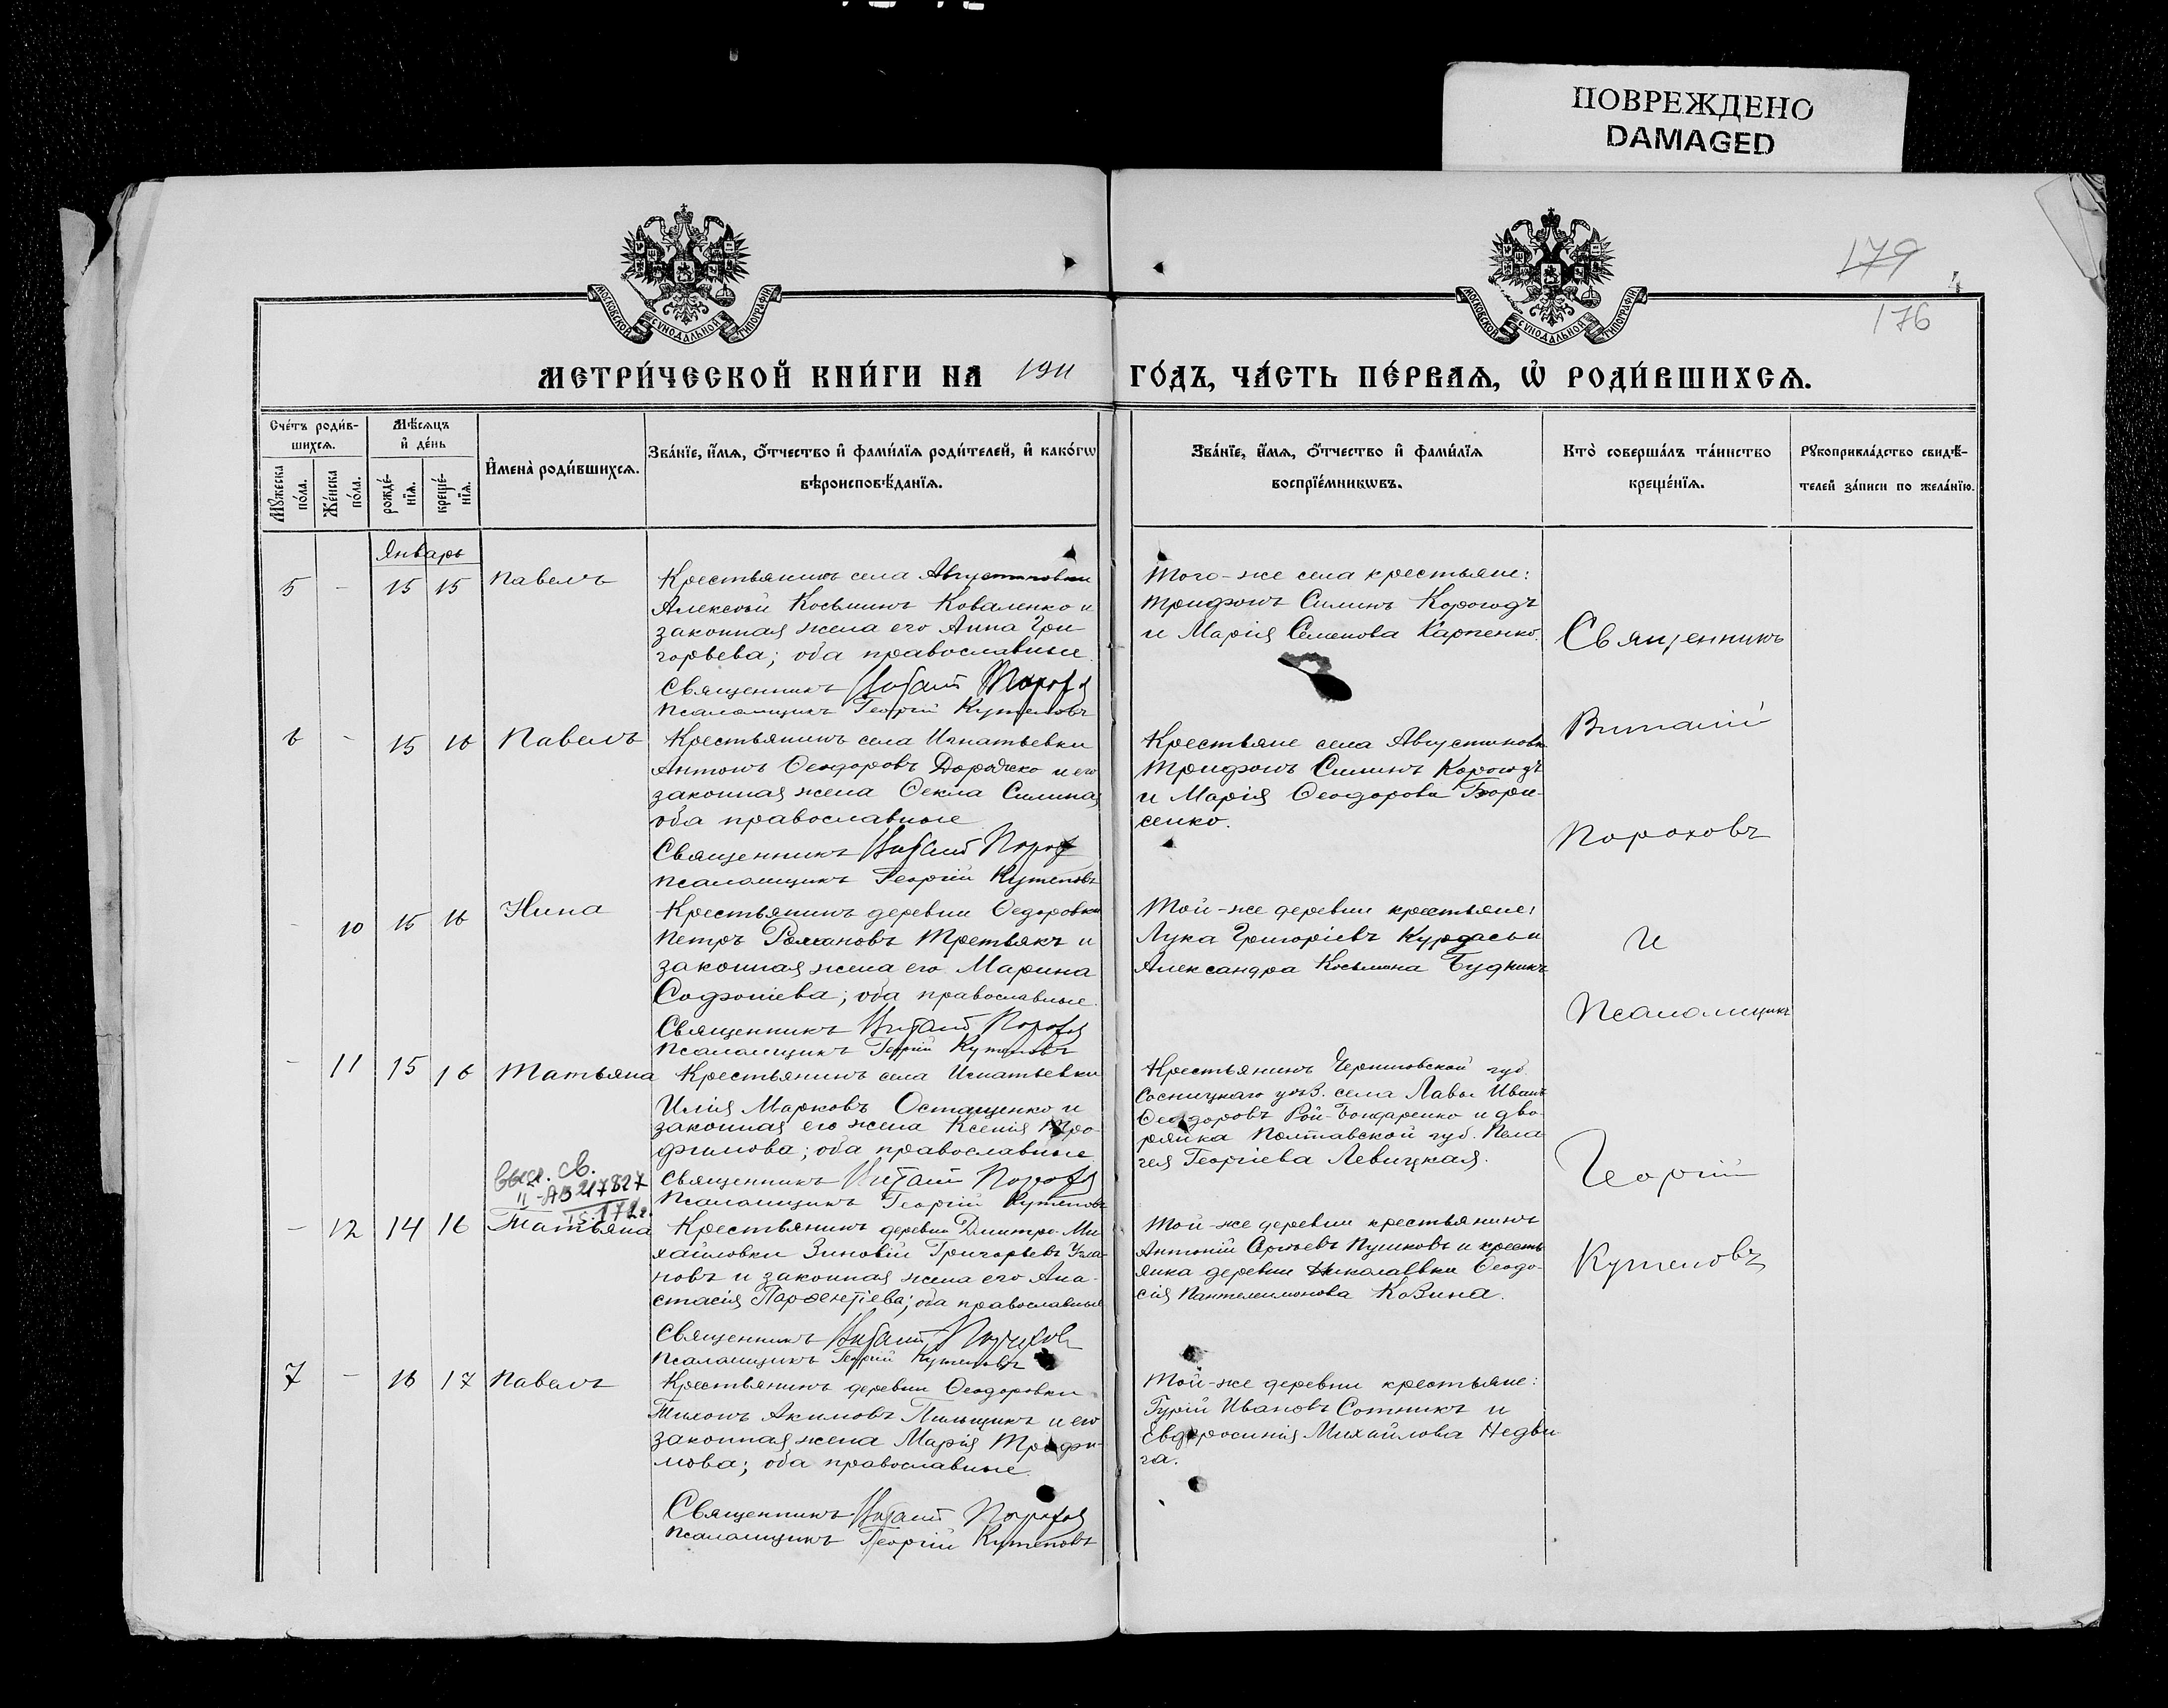 ПОВРЕЖДЕНО
DAMAGED
179
176
МОСКОВСКОЙ СѴНОДАЛЬНОЙ ТИПОГРАФІИ
МОСКОВСКОЙ СѴНОДАЛЬНОЙ ТИПОГРАФІИ
МЕТРИ́ЧЕСКОЙ КНИ́ГИ НА 1911 ГО́ДЪ, ЧА́СТЬ ПЕ́РВАѦ, Ѡ҆ РОДИ́ВШИХСѦ.
Сче́тъ роди́в-
шихсѧ.
Мѣ́сѧцъ
и҆ де́нь
Мꙋ́жеска
по́ла.
Же́нска
по́ла.
рожде́-
нїѧ.
креще́-
нїѧ.
И҆мена̀ роди́вшихсѧ.
Зва́нїе, и҆́мѧ, ѻ҆́тчество и҆ фами́лїѧ роди́телей, и҆ како́гѡ
вѣроисповѣ́данїѧ.
Зва́нїе, и҆́мѧ, ѻ҆́тчество и҆ фами́лїѧ
воспрїе́мникѡвъ.
Кто̀ соверша́лъ та́инство
креще́нїѧ.
Рꙋкоприкла́дство свидѣ́-
телей за́писи по жела́нїю.
Январь
5 - 15 15 Павелъ
Крестьянинъ села Августиновки
Алексѣй Косьминъ Коваленко и
законная жена его Анна Гри
горьева; оба православные.
Священникъ Виталій Пороховъ
Псаломщикъ Георгій Кутеповъ
Того-же села крестьяне:
Трифонъ Силинъ Корогодъ
и Марія Семенова Карпенко.
6 - 15 16 Павелъ
Крестьянинъ села Игнатьевки
Антонъ Ѳеодоровъ и его
законная жена Ѳекла Силина,
оба православные
Священникъ Виталій Пороховъ
Псаломщикъ Георгій Кутеповъ
Крестьяне села Августиновки
Трифонъ Силинъ Корогодъ
и Марія Ѳеодорова Бори-
сенко.
- 10 15 16 Нина
Крестьянинъ деревни Ѳедоровки
Петръ Романовъ Третьякъ и
законная жена его Марина
Софоніева; оба православные.
Священникъ Виталій Пороховъ
Псаломщикъ Георгій Кутеповъ
Той-же деревни крестьяне:
Лука Григоріевъ и
Александра Косьмина Будникъ
- 11 15 16 Татьяна
Крестьянинъ села Игнатьевки
Илія Марковъ Остащенко и
законная его жена Ксенія Тро-
фимова; оба православные
Священникъ Виталій Пороховъ
Псаломщикъ Георгій Кутеповъ
Крестьянинъ Черниговской губ.
Сосницкаго уѣз. села Лавы Иванъ
Ѳеодоровъ Рой-Бондаренко и дво-
рянка Полтавской губ. Пела
гея Георгіева Левицкая.
св.
II-АБ 217827
- 12 14 16 Татьяна
Крестьянинъ деревни Дмитро-Ми
хайловки Зиновій Григорьевъ
новъ и законная жена его Ана-
стасія Парѳентіева; оба православные
Священникъ Виталій Пороховъ
Псаломщикъ Георгій Кутеповъ
Той-же деревни крестьянинъ
Антоній Пушковъ и кресть
янка деревни Николаевки Ѳеодо-
сія Пантелеимонова Козина.
7 - 16 17 Павелъ
Крестьянинъ деревни Ѳеодоровки
Тихонъ Акимовъ Пильщикъ и его
законная жена Марія Трофи-
мова; оба православные.
Священникъ Виталій Пороховъ
Псаломщикъ Георгій Кутеповъ
Той-же деревни крестьяне:
Гурій Ивановъ Сотникъ и
Евфросинія Михайлова Недви
га.
Священникъ
Виталій
Пороховъ
и
Псаломщикъ
Георгій
Кутеповъ